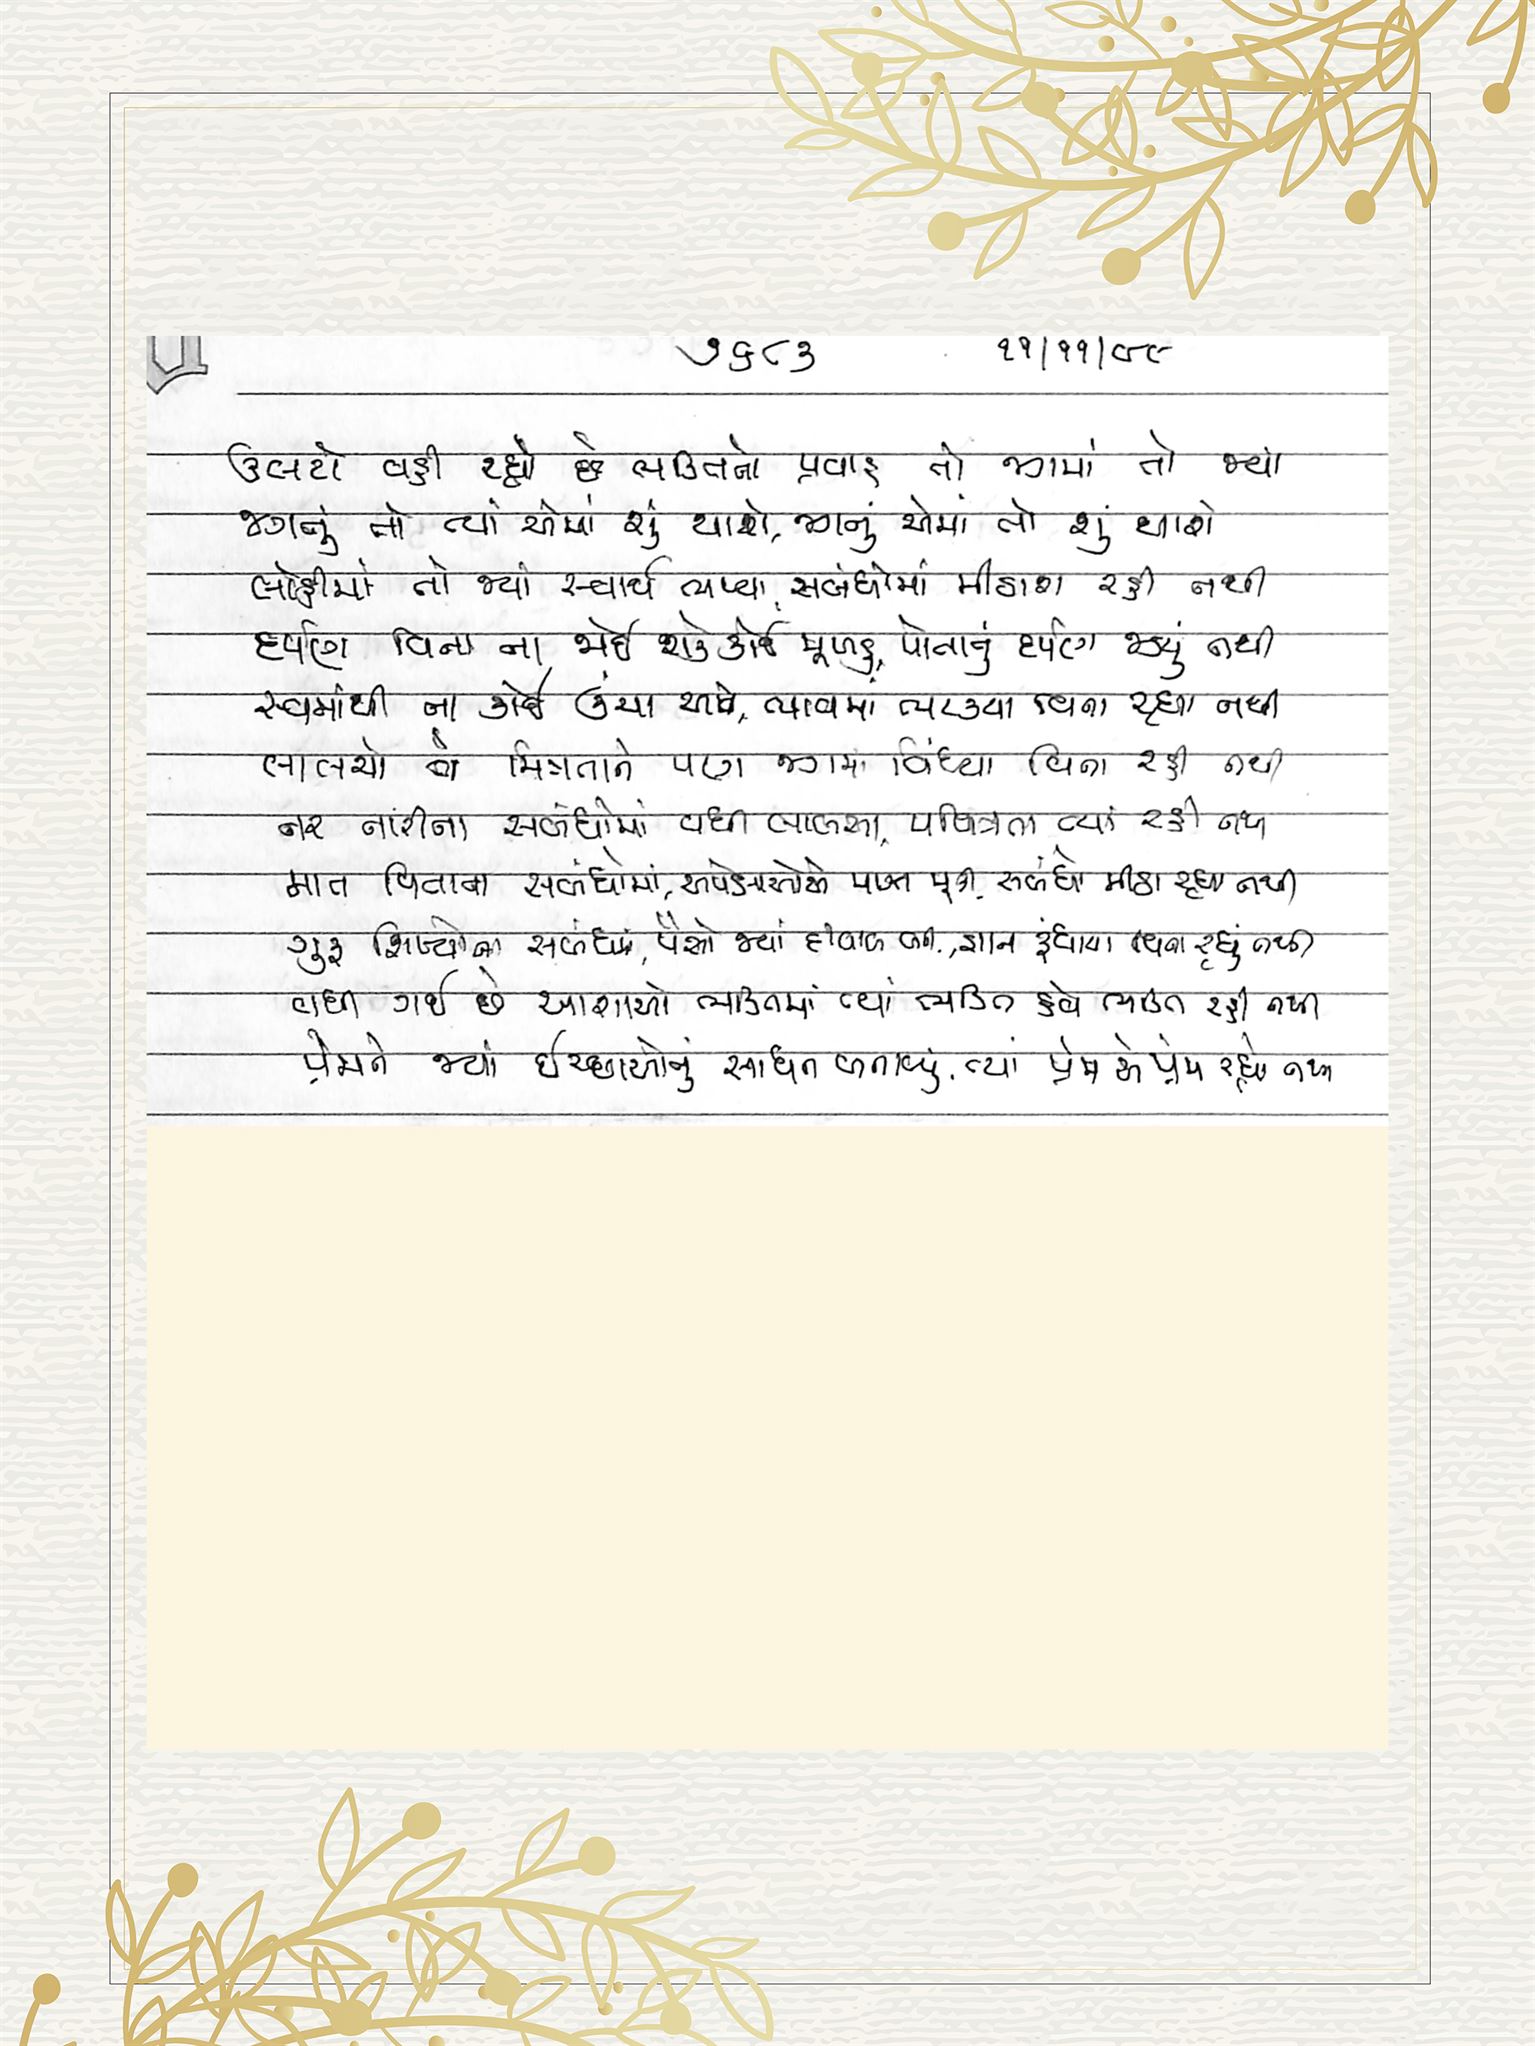 ૭૬૮૩ ૧૧/૧૧/૯૮
ઉલટો વહી રહ્યો છે ભક્તિનો પ્રવાહ તો જગમાં તો જ્યાં
જગનું તો ત્યાં એમાં શું થાશે, જગનું એમાં તો શું થાશે
લોહીમાં તો જ્યાં સ્વાર્થ ભળ્યા, સબંધોમાં મીઠાશ રહી નથી
દર્પણ વિના ના જોઈ શકે કોઈ મૂખડું, પોતાનું દર્પણ જડ્યું નથી
સ્વમાંથી ના કોઈ ઉંચા આવે, ભાવમાં ભટક્યા વિના રહ્યા નથી
લાલચો એ મિત્રતાને પણ જગમાં વિંધ્યા વિના રહી નથી
નર નારીના સબંધોમાં વધી લાલસા, પવિત્રતા ત્યાં રહી નથી
માત પિતાના સબંધોમાં, સબંધો મીઠા રહ્યા નથી
ગુરુ શિષ્યોના સબંધમાં, પૈસો જ્યાં દીવાલ બની, જ્ઞાન રૂંધાયા વિના રહ્યું નથી
વધી ગઈ છે આશાઓ ભક્તિમાં ત્યાં ભક્તિ હવે ભક્તિ રહી નથી
પ્રેમને જ્યાં ઈચ્છાઓનું સાધન બનાવ્યું, ત્યાં પ્રેમ એ પ્રેમ રહ્યો નથી